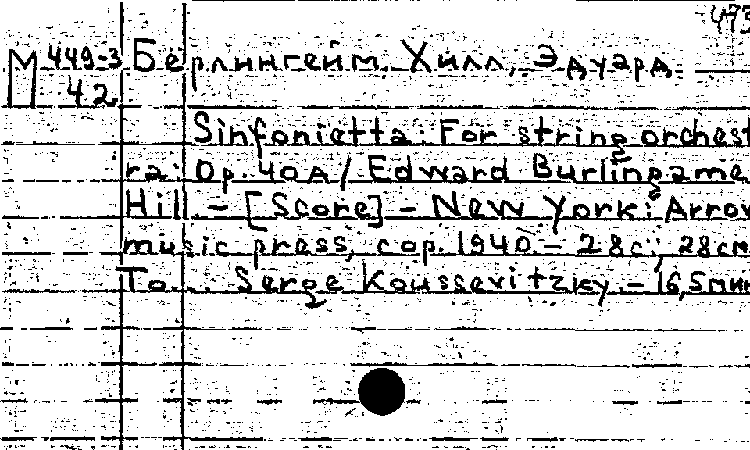 473
М 449-3 Бёрлингейм. Хилл, Эдуард.
42
Sinfonietta: For string orchest
ra: Op. 40A / Edward Burlingame
Hill. - [Score] - New York: Arrow
music press, cop. 1940. - 28с.; 28см
To... Serge Koussevitzky. - 16,5мин